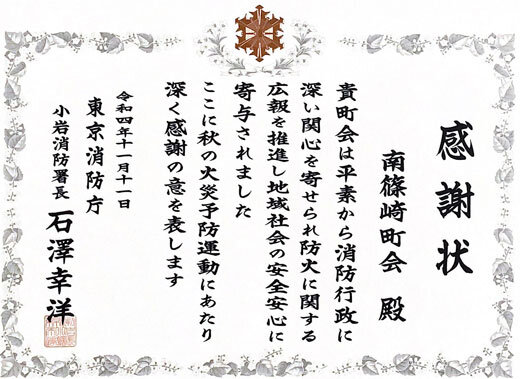 感謝状
南篠崎町会 殿
貴町会は平素から消防行政に
深い関心を寄せられ防火に関する
広報を推進し地域社会の安全安心に
寄与されました
ここに秋の火災予防運動にあたり
深く感謝の意を表します
令和四年十一月十一日
東京消防庁
小岩消防署長 石澤幸洋